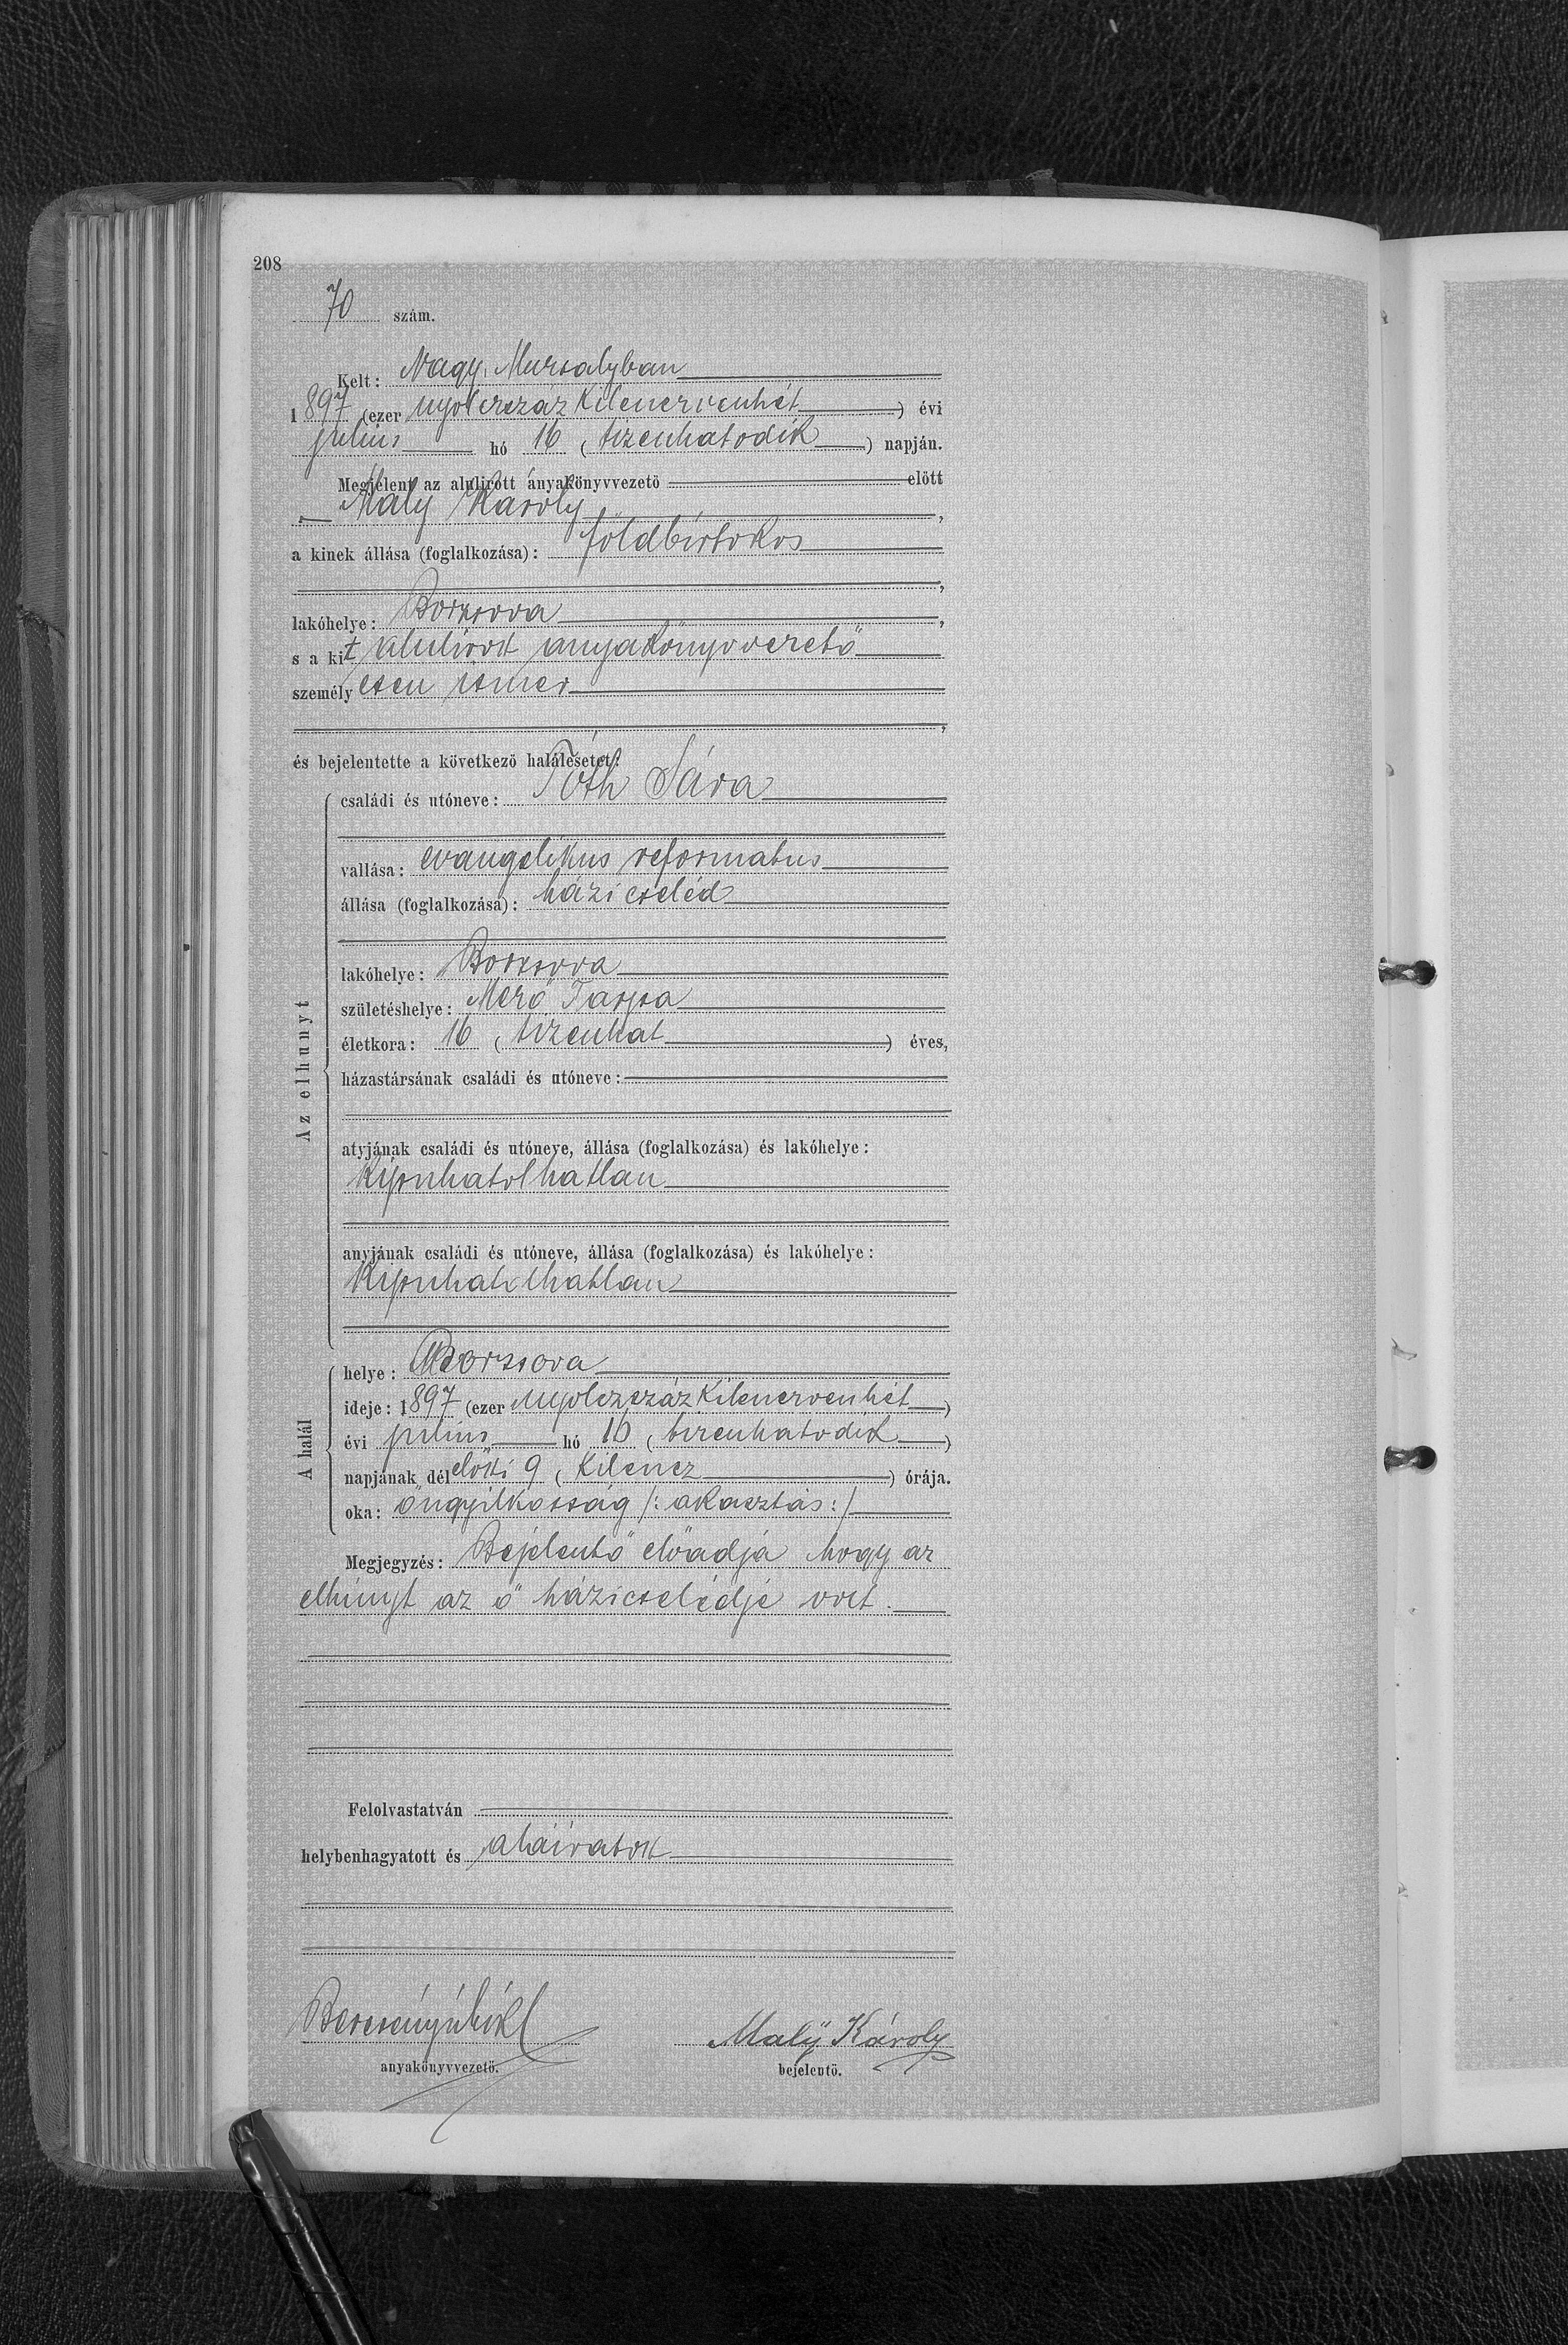 208
70 szám.
Kelt: Nagy Muzsalyban
1897 (ezer nyolczszáz kilenczvenhét) évi
julius hó 16 (tizenhatodik) napján.
Megjelent az alulirott anyakönyvvezető előtt
Maly Károly,
a kinek állása (foglalkozása): földbirtokos
,
lakóhelye: Borzsova,
s a kit alulirott anyakönyvvezető
személyesen ismer
,
és bejelentette a következő halálesetet:
Az elhunyt
családi és utóneve: Tóth Sára
vallása: evangelikus reformatus
állása (foglalkozása): házi cseléd
lakóhelye: Borzsova
születéshelye: Mező Tarpa
életkora: 16 (tizenhat) éves,
házastársának családi és utóneve:
atyjának családi és utóneve, állása (foglalkozása) és lakóhelye:
kipuhatolhatlan
anyjának családi és utóneve, állása (foglalkozása) és lakóhelye:
kipuhatolhatlan
A halál
helye: Borzsova
ideje: 1897 (ezer nyolczszáz kilenczvenhét)
évi julius hó 16 (tizenhatodik)
napjának délelőtti 9 (kilencz) órája.
oka: öngyilkosság /: akasztás :/
Megjegyzés: Bejelentő előadja hogy az
elhúnyt az ő házicselédje volt.
Felolvastatván
helybenhagyatott és aláiratott
Malÿ Károly
anyakönyvvezető. bejelentő.